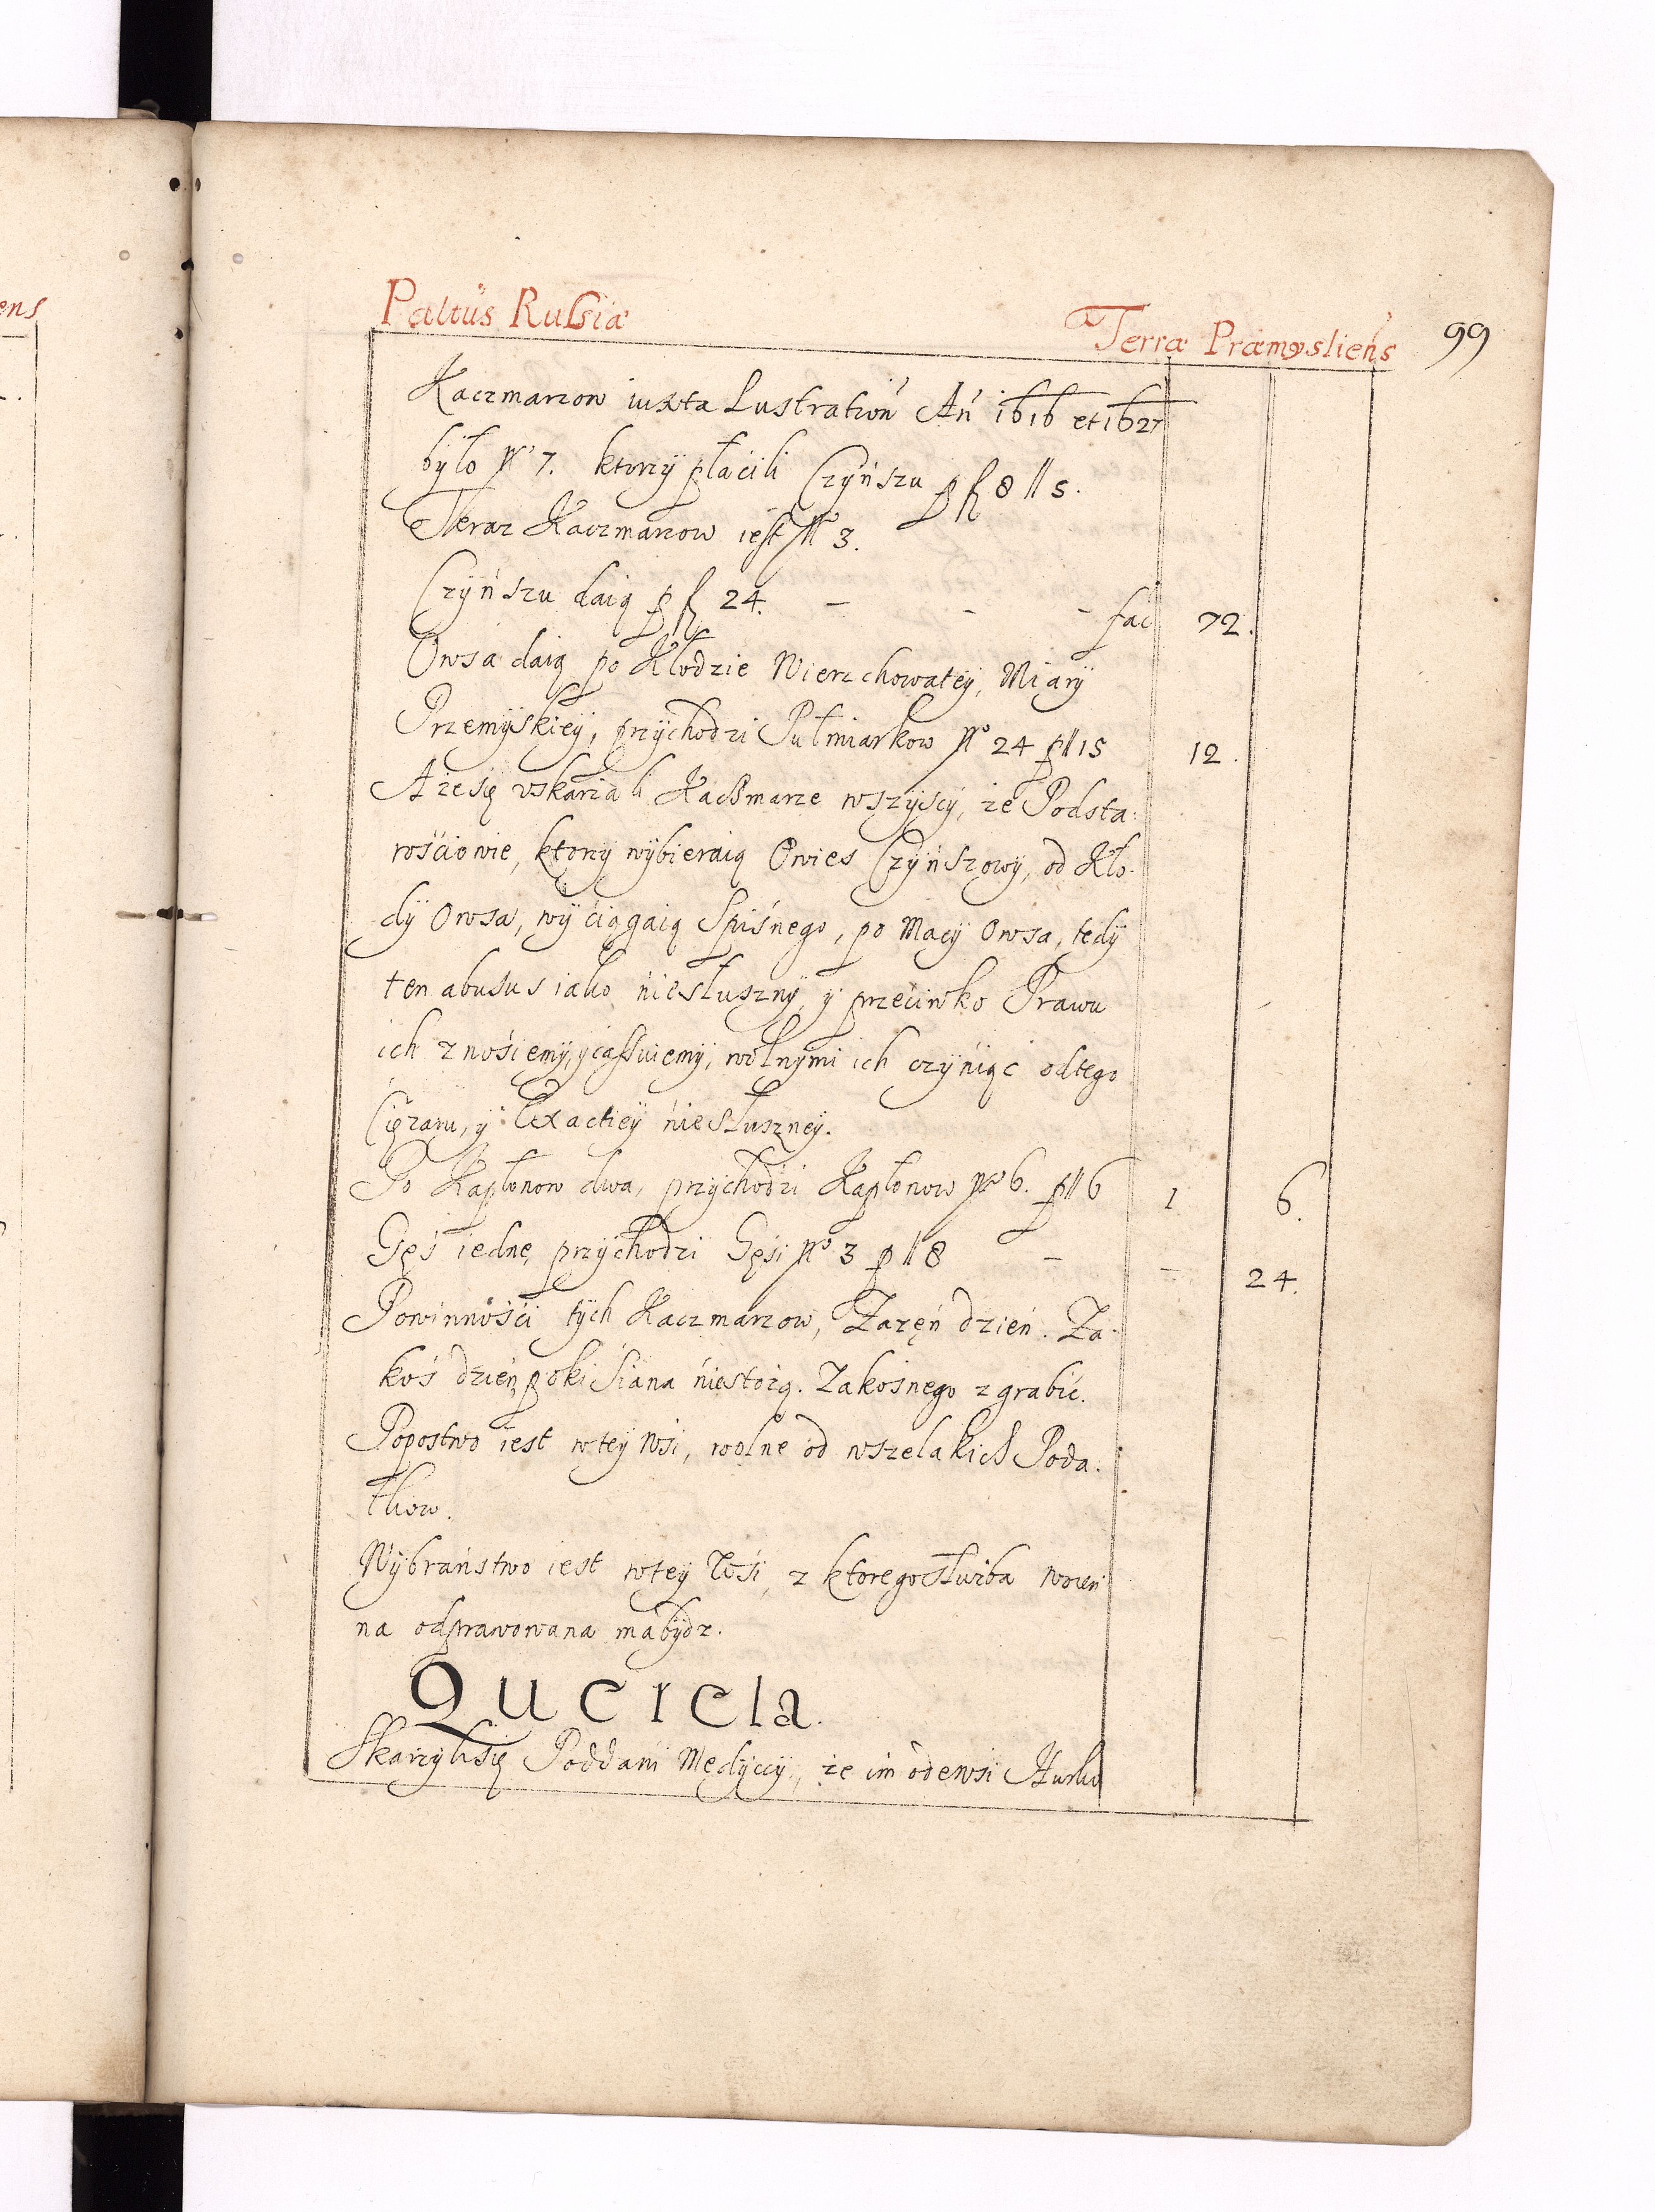 ens
Paltus Russiæ Terræ Præmysliens 99
Kaczmarzow iuxta Lustration An 1616 et 1627
było No 7. ktorzy płacili Czynszu p fl 8 ll 5.
Teraz Kaczmarzow iest No 3.
Czynszu daią p fl 24. - - - fac 72.
Owsa daią po Kłodzie Wierzchowatey, Miary
Przemyskiey, przychodzi Pułmiarkow No 24 p ll 15 12.
A że się vskarżali Kaczmarze wszyscy, że Podsta:
rościowie, ktorzy wybieraią Owies Czynszowy, od Kło-
dy Owsa, wyciągaią Spiśnego, po Macy Owsa, tedy
ten abusus iako niesłuszny, y przeciwko Prawu
ich znosiemy, y cassuiemy, wolnymi ich czyniąc od tego
Ciężaru, y Exactiey niesłuszney.
Po Kapłonow dwa, przychodzi Kapłonow No 6. p ll 6 1 6.
Gęś iednę, przychodzi Gęsi No 3 p ll 8 - - 24.
Powinności tych Kaczmarzow, Zażęń dzień. Za-
koś dzień poki Siana niestożą. Zakośnego zgrabić.
Popostwo iest wtey Wsi, wolne od wszelakich Poda:
tkow.
Wybraństwo iest wtey Wsi, z ktorego służba woien
na odprawowana ma bydz.
Querela.
Skarżyli się Poddani Medyccy, że im odewsi Hurko